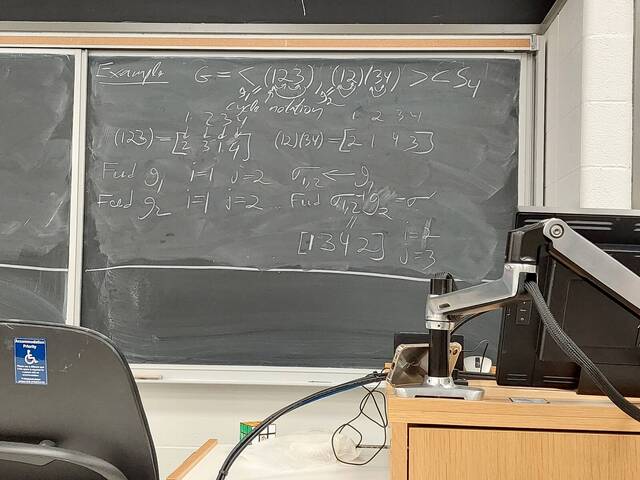 Example G = < (123), (12)(34) > ⊂ S4
g1 g2
cycle notation
1 2 3 4 1 2 3 4
(123) = [2 3 1 4] (12)(34) = [2 1 4 3]
Feed g1 i=1 j=2 σ1,2 ← g1
Feed g2 i=1 j=2 .. Find σ1,2⁻¹ g2 = σ
[1 3 4 2] i=2
j=3
Accommodation
Priority